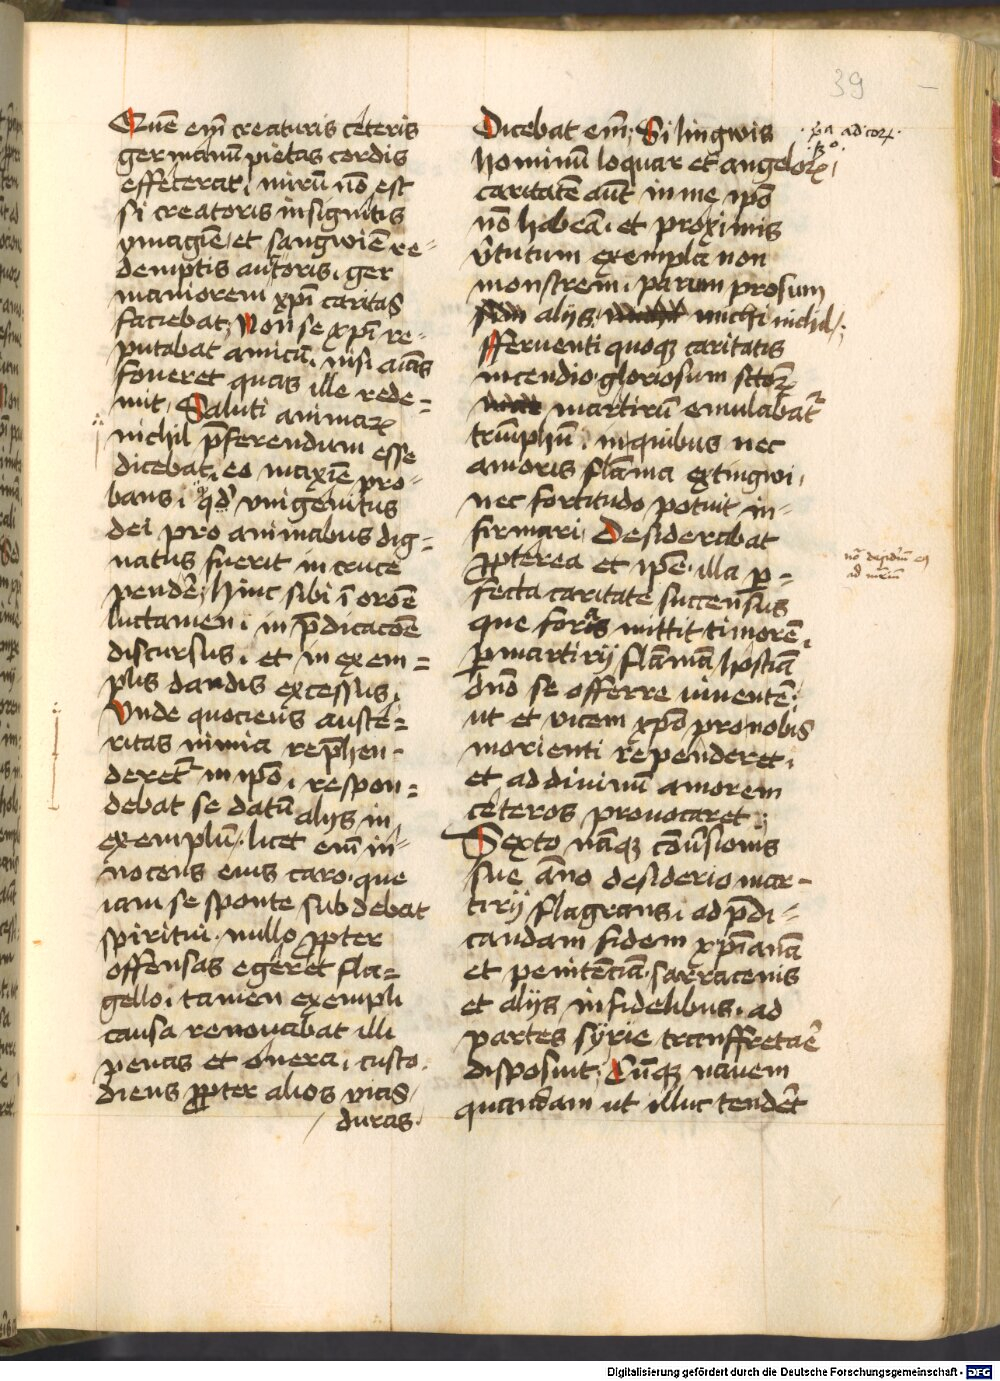 39
Quē em̄ creaturis ceteris
germanū pietas cordis
effecerat, mirū nō est
si creatoris insignitis
ymagīe, et sangwīe re-
demptis auctoris, ger
maniorem xp̄i caritas
faciebat; Non se xp̄i re-
putabat amicū, nisi aīas
foveret quas ille rede=
mit, Saluti animaꝝ
nichil p̄ferendum esse
dicebat, eo maxīe pro-
bans, qd' vnigenitus
dei pro animabus dig=
natus fuerit in cruce
pendē; Hinc sibi ī orōe
luctamen, in p̄dicacōe
discursus, et in exem=
plis dandis excessus,
Vnde quociens auste=
ritas nimia rep̄hen-
deret' in ip̄o, respon=
debat se datū aliis in
exemplū, licet em̄ in-
nocens eius caro, que
iam se sponte subdebat
spiritui, nullo ꝓpter
offensas egeret fla=
gello, tamen exempli
causa renouabat illi
penas et onera, custo-
diens ꝓpter alios vias
duras.
Dicebat em̄, Si lingwis
hominū loquar et angeloꝝ,
caritatē aūt in me ip̄o
nō habeā, et proximis
v̄tutum exempla non
monstrem, parum prosum
aliis, michi nichil;
Fferuenti quoqꝫ caritatis
incendio gloriosum sctōꝝ
martirū emulabat'
triūmphū, in quibus nec
amoris flāma extingwi,
nec fortitudo potuit in-
firmari, Desiderabat
ꝓpterea et ip̄e, illa ꝑ=
fecta caritate succensus
que foras mittit timorē,
ꝑ martirij flāmā hostiā
dn̄o se offerre viuentē,
ut et vicem xp̄o pro nobis
morienti rependeret,
et ad diuinū amorem
ceteros prouocaret;
Sexto nāqꝫ conūsionis
sue āno desiderio mar-
tirij flagrans, ad p̄di-
candam fidem xp̄ianā
et penitēciā, sarracenis
et aliis infidelibus, ad
partes syrie transfretaē
disposuit; Cūqꝫ nauem
quandam ut illuc tendēt
p̄a ad coꝝ.
Digitalisierung gefördert durch die Deutsche Forschungsgemeinschaft - DFG